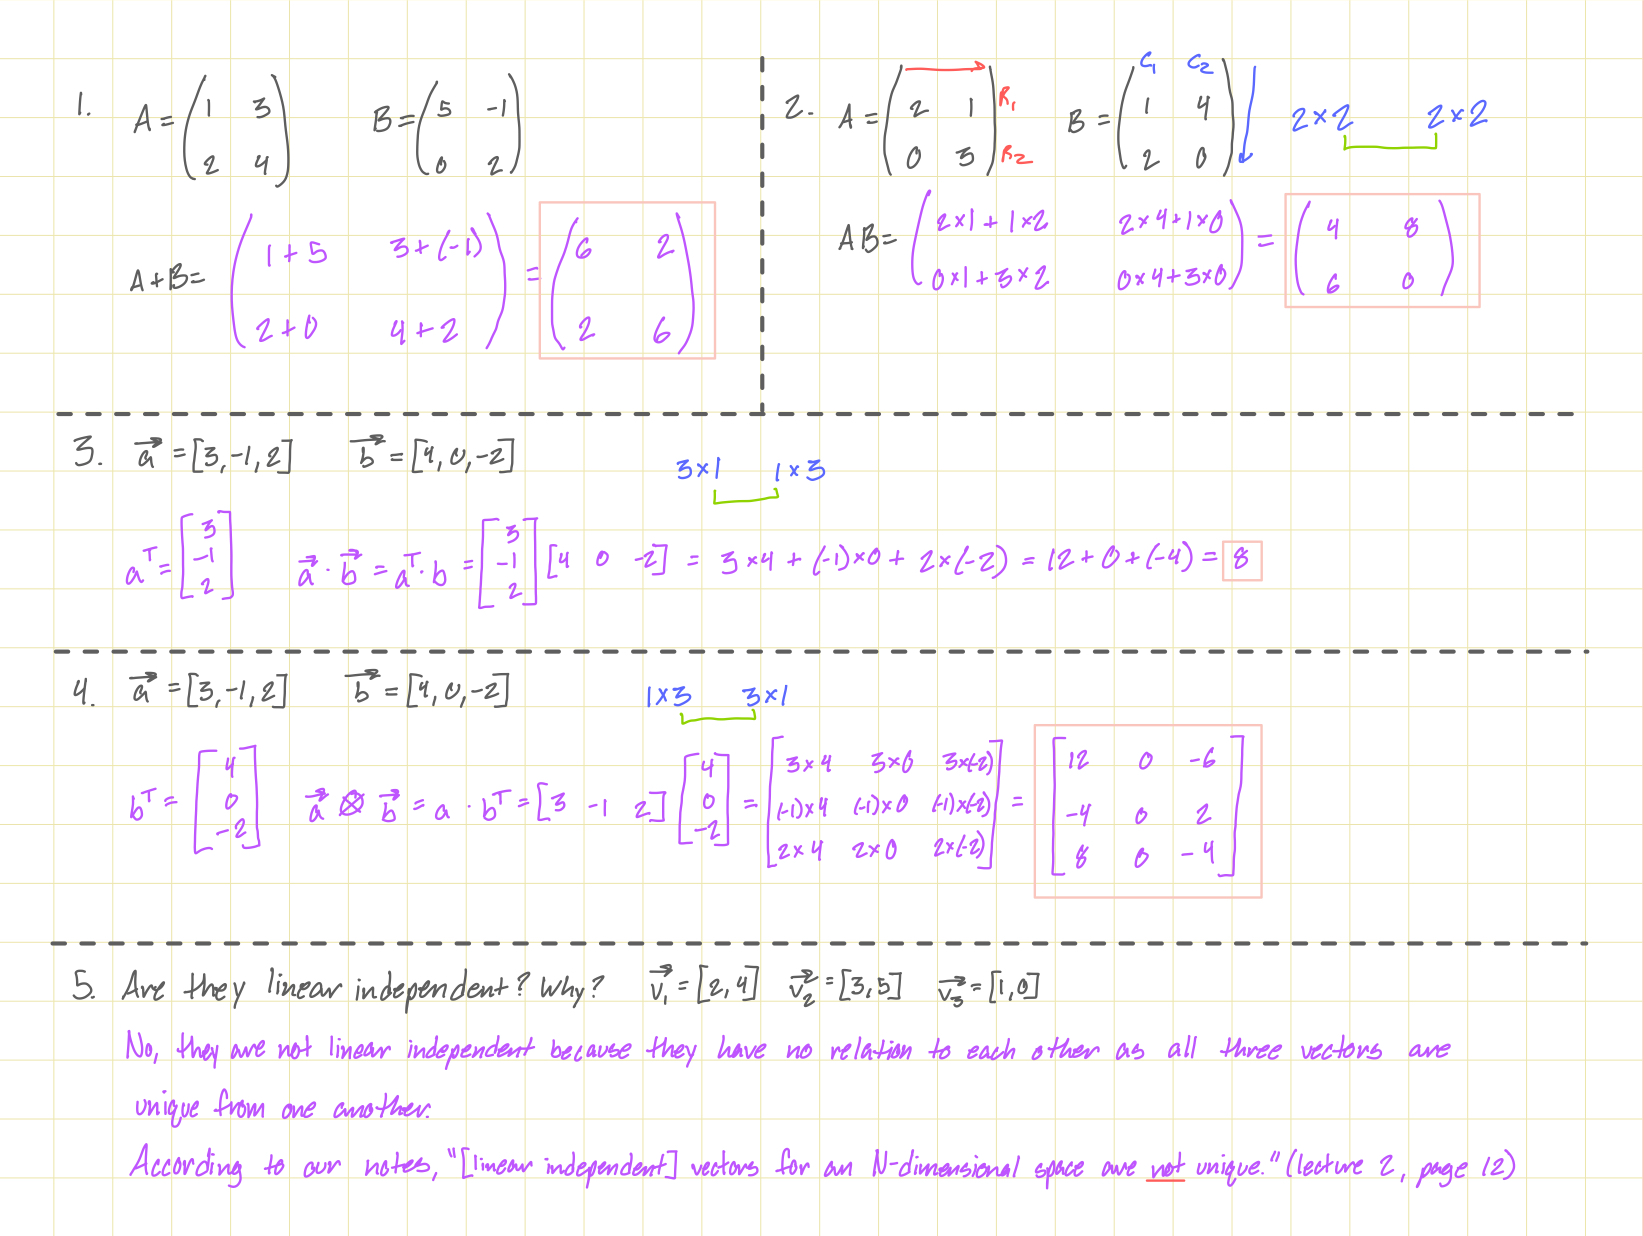 1. A = (1 3 2 4) B = (5 -1 0 2)
A+B = (1+5 3+(-1) 2+0 4+2) = (6 2 2 6)
2. A = (2 1 0 3) R₁ R₂ B = (1 4 2 0) C₁ C₂ 2×2 2×2
AB = (2×1+1×2 2×4+1×0 0×1+3×2 0×4+3×0) = (4 8 6 0)
3. a⃗ = [3,-1,2] b⃗ = [4,0,-2] 3×1 1×3
aᵀ = [3 -1 2] a⃗ · b⃗ = aᵀ · b = [3 -1 2] [4 0 -2] = 3×4 + (-1)×0 + 2×(-2) = 12+0+(-4) = 8
4. a⃗ = [3,-1,2] b⃗ = [4,0,-2] 1×3 3×1
bᵀ = [4 0 -2] a⃗ ⊗ b⃗ = a · bᵀ = [3 -1 2] [4 0 -2] = [3×4 3×0 3×(-2) (-1)×4 (-1)×0 (-1)×(-2) 2×4 2×0 2×(-2)] = [12 0 -6 -4 0 2 8 0 -4]
5. Are they linear independent? Why? v⃗₁ = [2,4] v⃗₂ = [3,5] v⃗₃ = [1,0]
No, they are not linear independent because they have no relation to each other as all three vectors are
unique from one another.
According to our notes, "[linear independent] vectors for an N-dimensional space are not unique." (lecture 2, page 12)